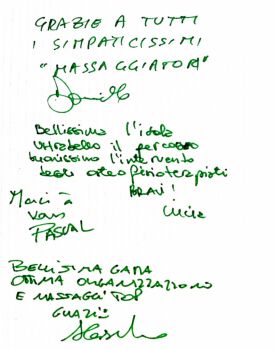 GRAZIE A TUTTI
I SIMPATICISSIMI
"MASSAGGIATORI"
Bellissima l'isola
Ultrabello il percorso
buonissimo l'intervento
degli osteo fisioterapisti
BRAVI!
Merci à
vous
PASCAL
BELLISSIMA GARA
OTTIMA ORGANIZZAZIONE
E MASSAGGI TOP
GRAZIE